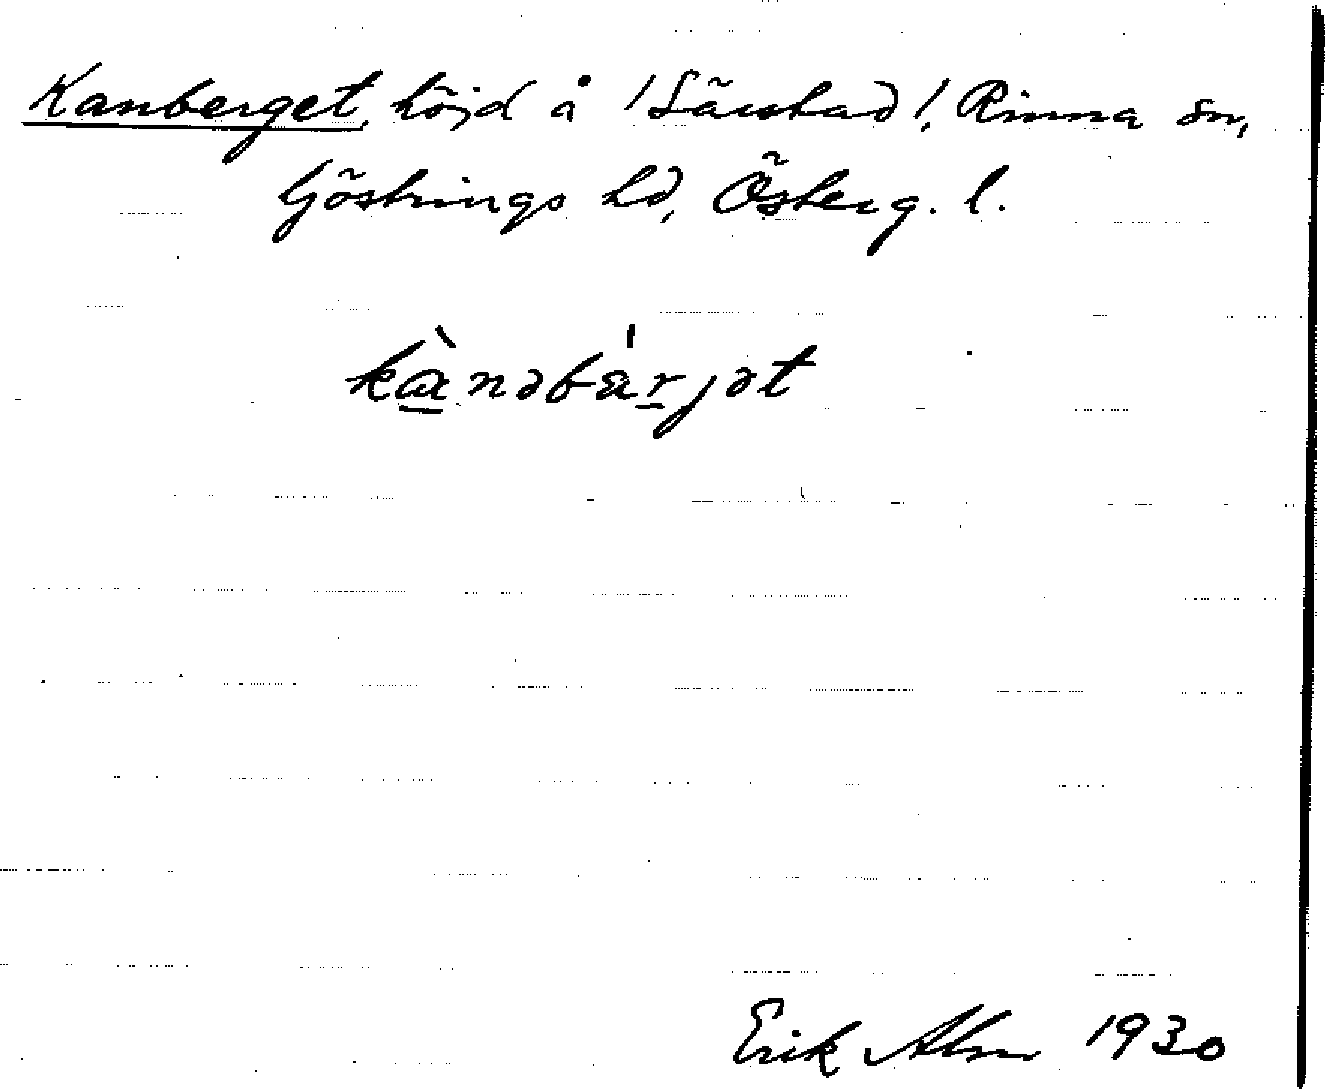 Kanberget, höjd å /Särstad/, Rinna sn,
Göstrings hd, Österg. l.
kὰnəbárjət
Erik Alm 1930